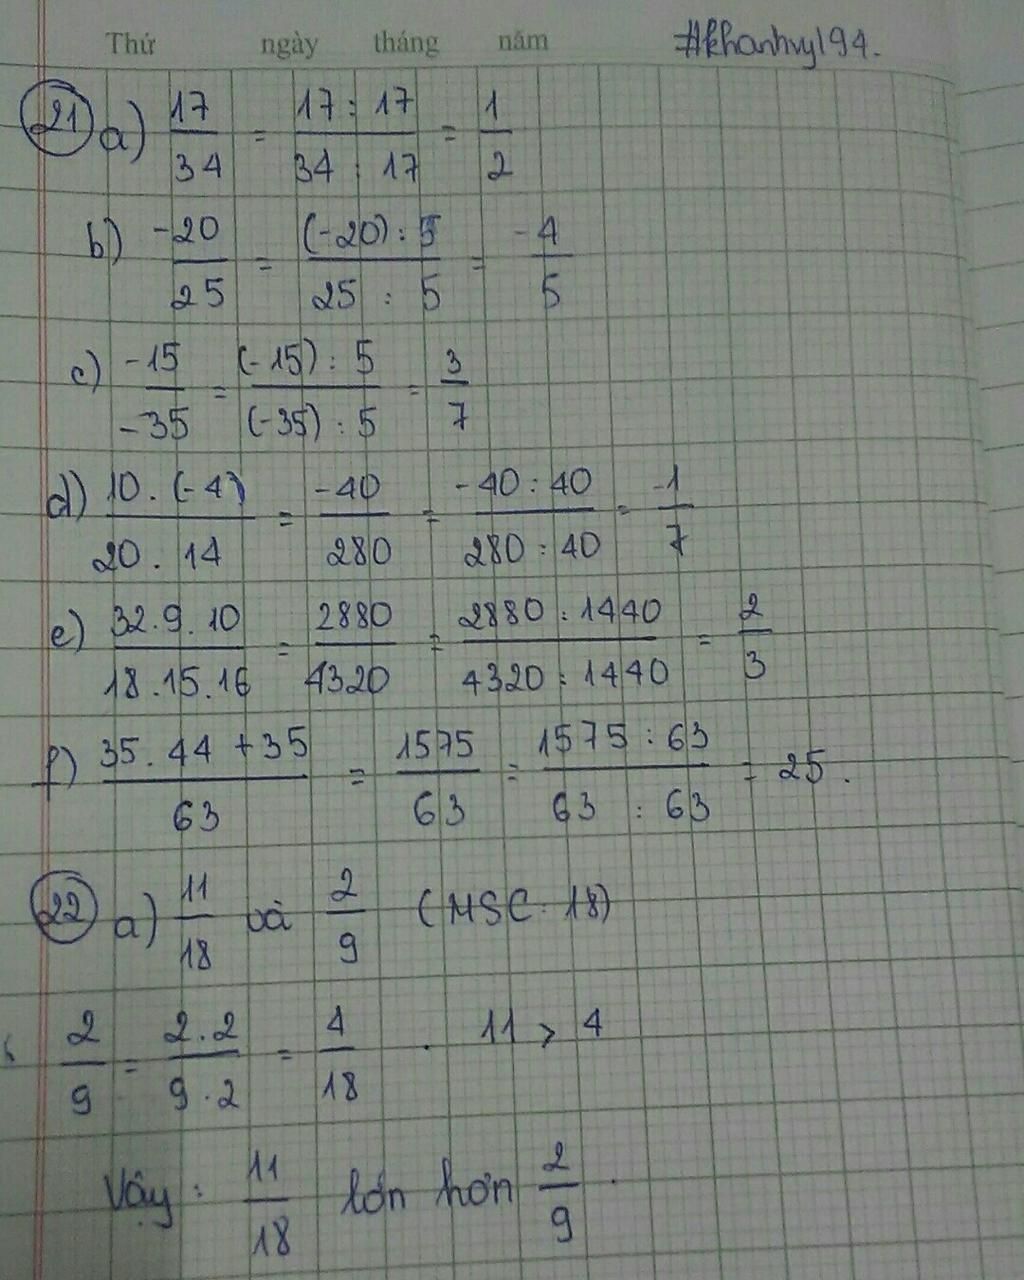 Thứ ngày tháng năm #khanhvy194.
21 a) 17/34 = 17 : 17/34 : 17 = 1/2
b) -20/25 = (-20) : 5/25 : 5 = -4/5
c) -15/-35 = (-15) : 5/(-35) : 5 = 3/7
d) 10 . (-4)/20 . 14 = -40/280 = -40 : 40/280 : 40 = -1/7
e) 32 . 9 . 10/18 . 15 . 16 = 2880/4320 = 2880 : 1440/4320 : 1440 = 2/3
f) 35 . 44 + 35/63 = 1575/63 = 1575 : 63/63 : 63 = 25 .
22 a) 11/18 và 2/9 (MSC : 18)
2/9 = 2 . 2/9 . 2 = 4/18 . 11 > 4
Vậy : 11/18 lớn hơn 2/9 .